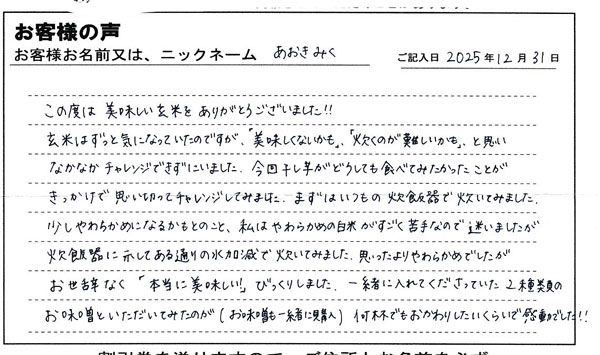 お客様の声
お客様お名前又は、ニックネーム あおきみく ご記入日 2025年12月31日
この度は美味しい玄米をありがとうございました!!
玄米はずっと気になっていたのですが、「美味しくないかも」、「炊くのが難しいかも」、と思い
なかなかチャレンジできずにいました。今回干し芋がどうしても食べてみたかったことが
きっかけで思い切ってチャレンジしてみました。まずはいつもの炊飯器で炊いてみました。
少しやわらかめになるかもとのこと、私はやわらかめの白米がすごく苦手なので迷いましたが
炊飯器に示してある通りの水加減で炊いてみました。思ったよりやわらかめでしたが
お世辞なく「本当に美味しい!」びっくりしました。一緒に入れてくださっていた2種類の
お味噌といただいてみたのが(お味噌も一緒に購入)何杯でもおかわりしたいくらいで感動でした!!